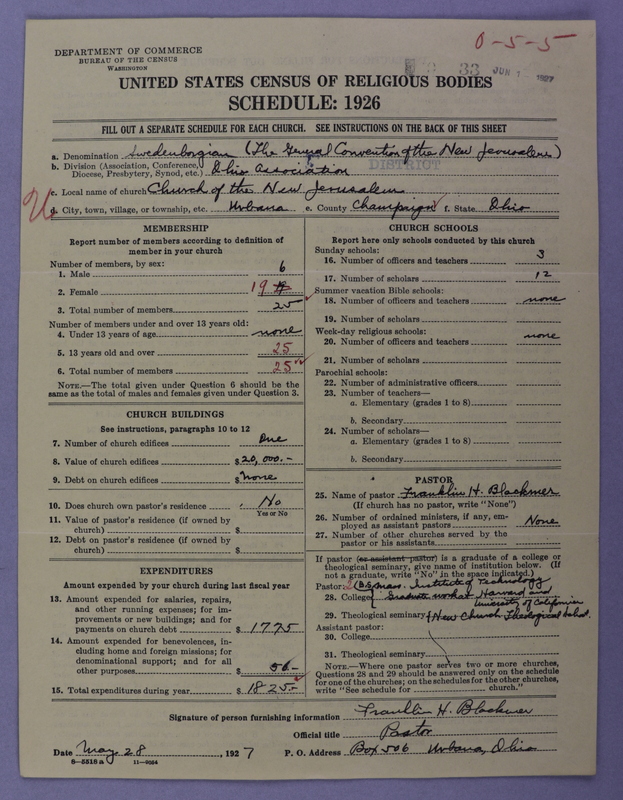 0-5-5
DEPARTMENT OF COMMERCE
BUREAU OF THE CENSUS
WASHINGTON
33 JUN 1 1927
UNITED STATES CENSUS OF RELIGIOUS BODIES
SCHEDULE: 1926
FILL OUT A SEPARATE SCHEDULE FOR EACH CHURCH. SEE INSTRUCTIONS ON THE BACK OF THIS SHEET
a. Denomination Swedenborgian (The General Convention of the New Jerusalem)
b. Division (Association, Conference, Diocese, Presbytery, Synod, etc.) Ohio Association
DISTRICT
c. Local name of church Church of the New Jerusalem
U
d. City, town, village, or township, etc. Urbana e. County Champaign f. State Ohio
MEMBERSHIP
Report number of members according to definition of
member in your church
Number of members, by sex:
1. Male 6
2. Female 19
3. Total number of members 25
Number of members under and over 13 years old:
4. Under 13 years of age none
5. 13 years old and over 25
6. Total number of members 25
NOTE.—The total given under Question 6 should be the
same as the total of males and females given under Question 3.
CHURCH BUILDINGS
See instructions, paragraphs 10 to 12
7. Number of church edifices One
8. Value of church edifices $20,000.-
9. Debt on church edifices $none
10. Does church own pastor's residence No
Yes or No
11. Value of pastor's residence (if owned by
church) $
12. Debt on pastor's residence (if owned by
church) $
EXPENDITURES
Amount expended by your church during last fiscal year
13. Amount expended for salaries, repairs,
and other running expenses; for im-
provements or new buildings; and for
payments on church debt $ 1775
14. Amount expended for benevolences, in-
cluding home and foreign missions; for
denominational support; and for all
other purposes $ 50.-
15. Total expenditures during year $ 1825.-
CHURCH SCHOOLS
Report here only schools conducted by this church
Sunday schools:
16. Number of officers and teachers 3
17. Number of scholars 12
Summer vacation Bible schools:
18. Number of officers and teachers none
19. Number of scholars
Week-day religious schools:
20. Number of officers and teachers none
21. Number of scholars
Parochial schools:
22. Number of administrative officers
23. Number of teachers—
a. Elementary (grades 1 to 8)
b. Secondary
24. Number of scholars—
a. Elementary (grades 1 to 8)
b. Secondary
PASTOR
25. Name of pastor Franklin H. Blackmer
(If church has no pastor, write "None")
26. Number of ordained ministers, if any, em-
ployed as assistant pastors None
27. Number of other churches served by the
pastor or his assistants
If pastor (or assistant pastor) is a graduate of a college or
theological seminary, give name of institution below. (If
not a graduate, write "No" in the space indicated.)
Pastor: 2 (B.S. Mass. Institute of Technology
28. College Graduate work at Harvard and
University of California
29. Theological seminary New Church Theological School
Assistant pastor:
30. College
31. Theological seminary
NOTE.—Where one pastor serves two or more churches,
Questions 28 and 29 should be answered only on the schedule
for one of the churches; on the schedules for the other churches,
write "See schedule for church."
Signature of person furnishing information Franklin H. Blackmer
Official title Pastor
Date May 28, 1927 P. O. Address Box 506 Urbana, Ohio
8-5518 a 11-9024